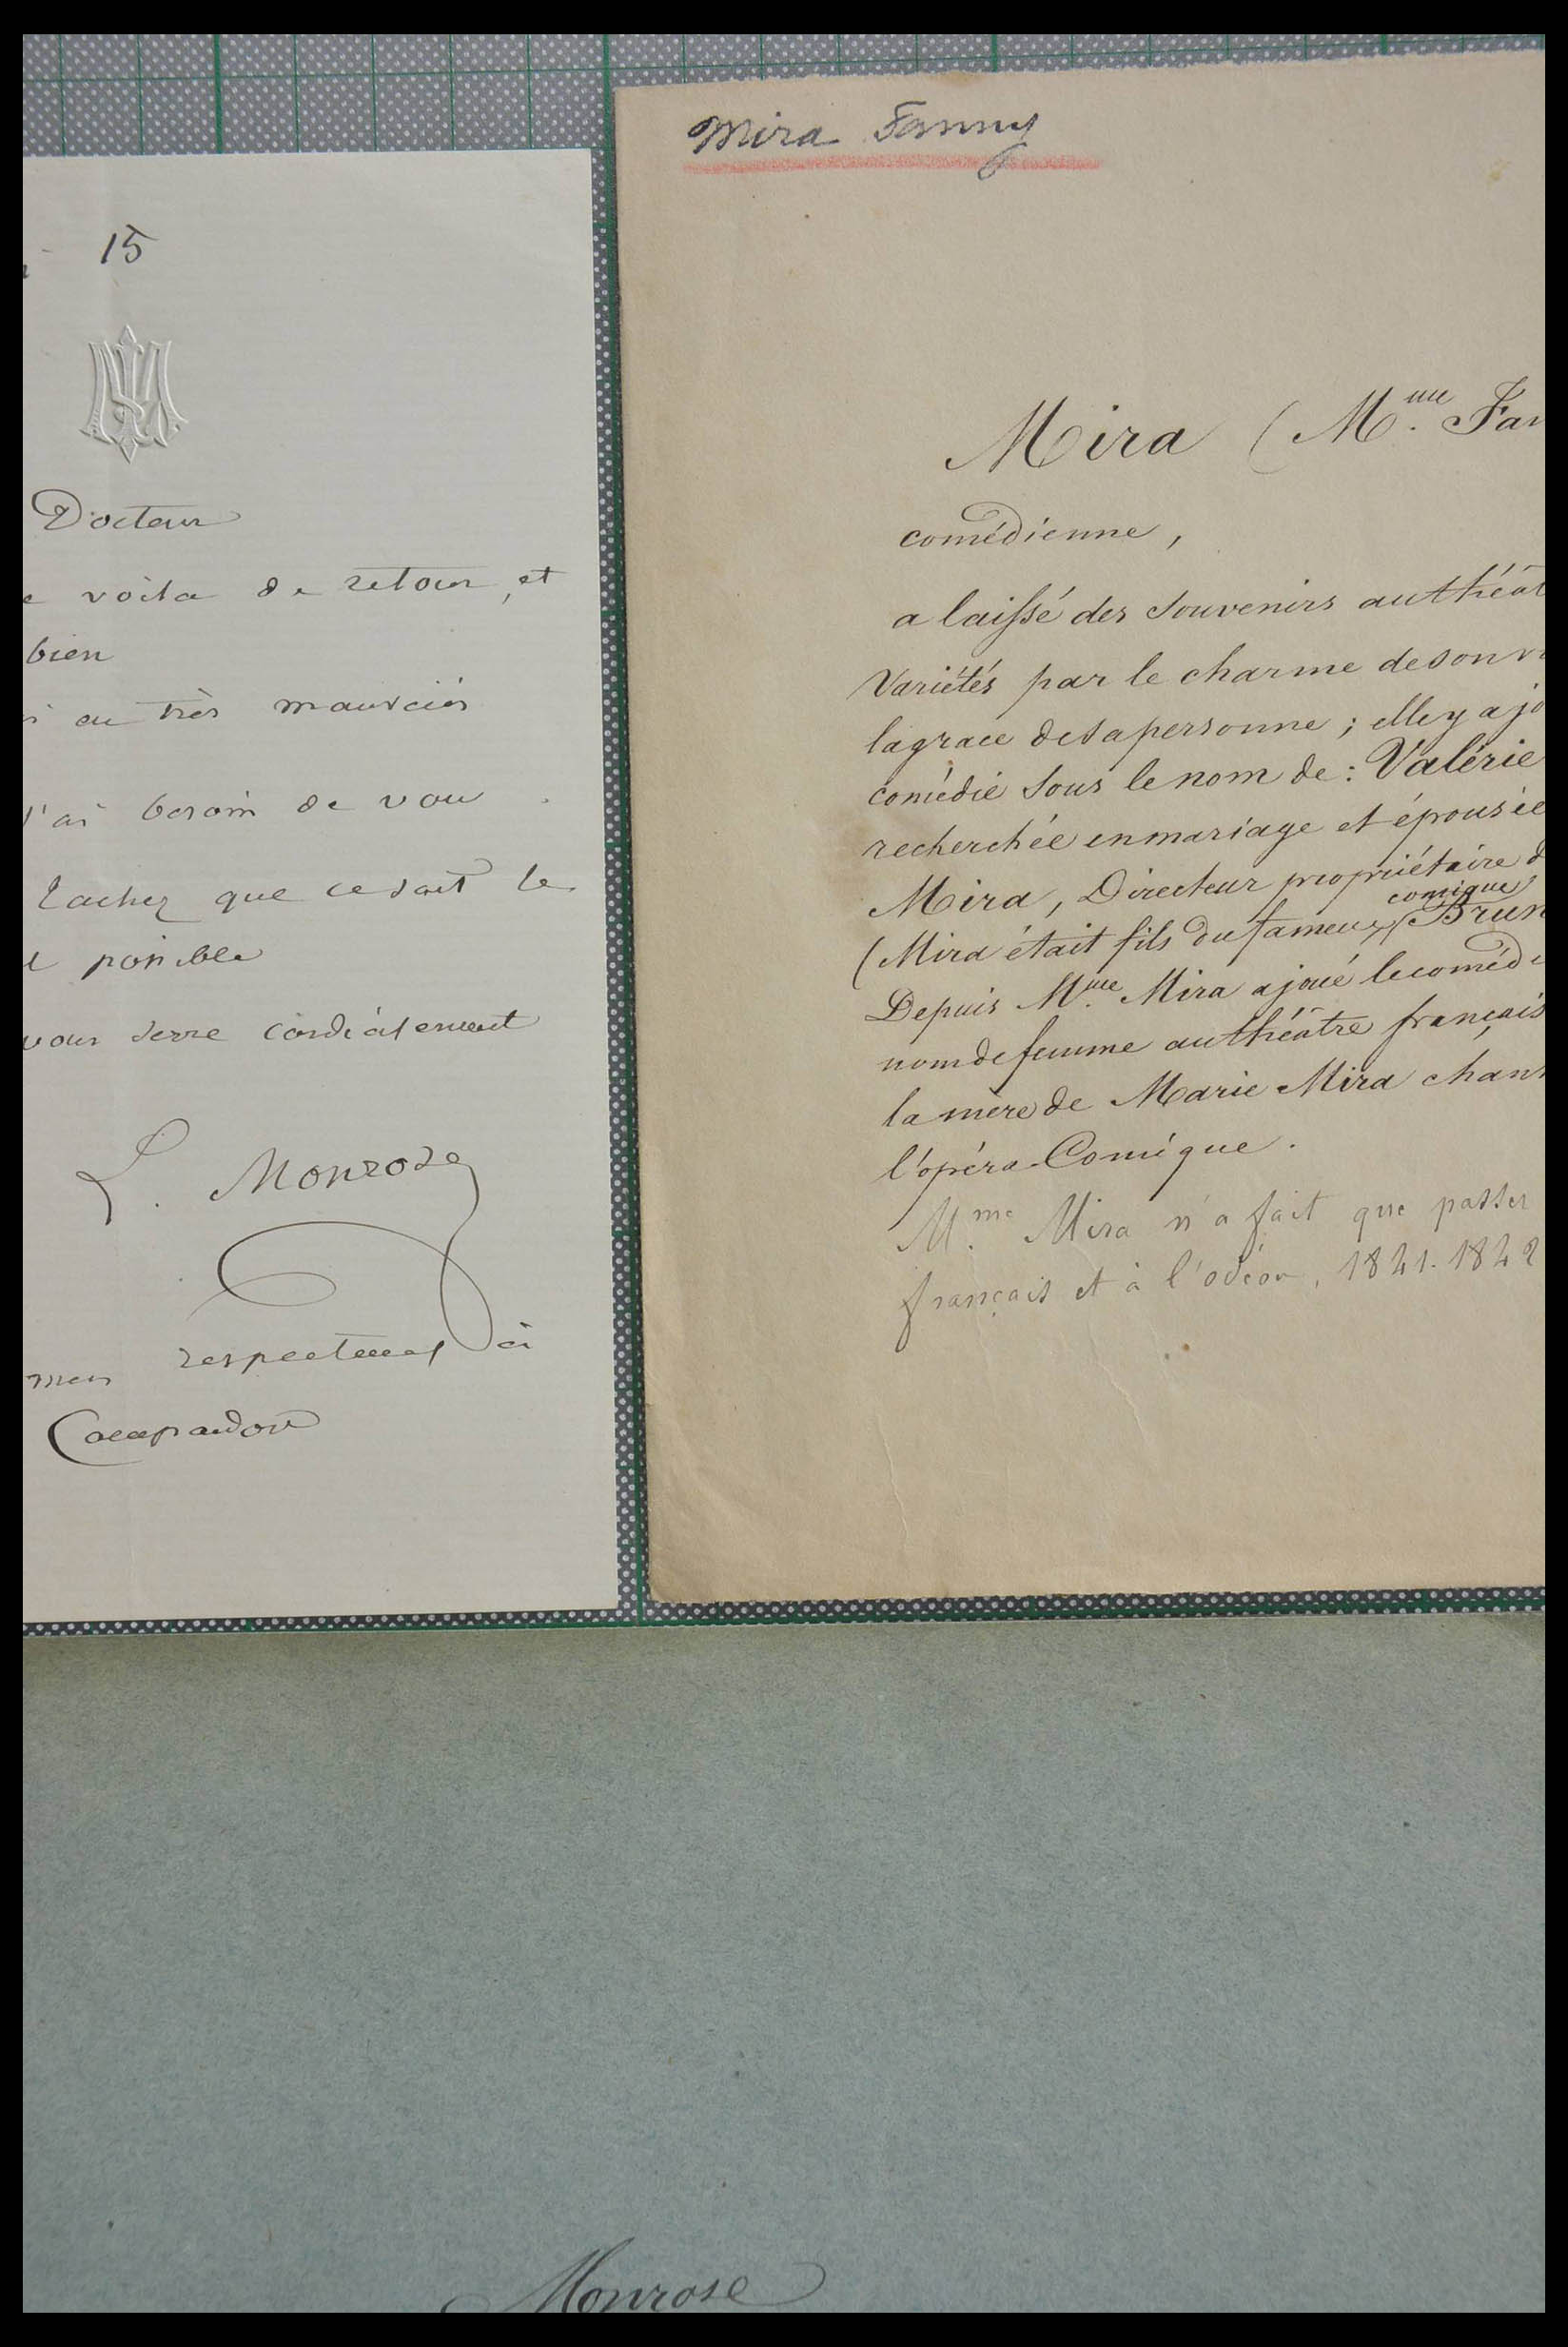 15
Docteur
voila de retour, et
bien
au très mauvais
j'ai besoin de vous.
Tachez que ce soit le
possible
vous serre cordialement
L. Monrose
mes respectueux à
Campardon
Mira Fanny
Mira (Mme Fan
comédienne,
a laissé des souvenirs au théât
Variétés par le charme de son
la grace de sa personne; elle y a jo
comédie sous le nom de: Valérie
recherchée en mariage et épousée
Mira, Directeur propriétaire d
comique
(Mira était fils du fameux Brun
Depuis Mme Mira a joué le coméd
nom de femme au théâtre français
la mère de Marie Mira chan
l'opéra-Comique.
Mme Mira n'a fait que passer
français et à l'odéon, 1841-1842
Monrose